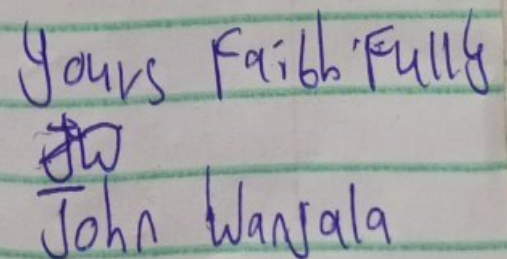 Yours Faibb Fully
JW
John Wanjala